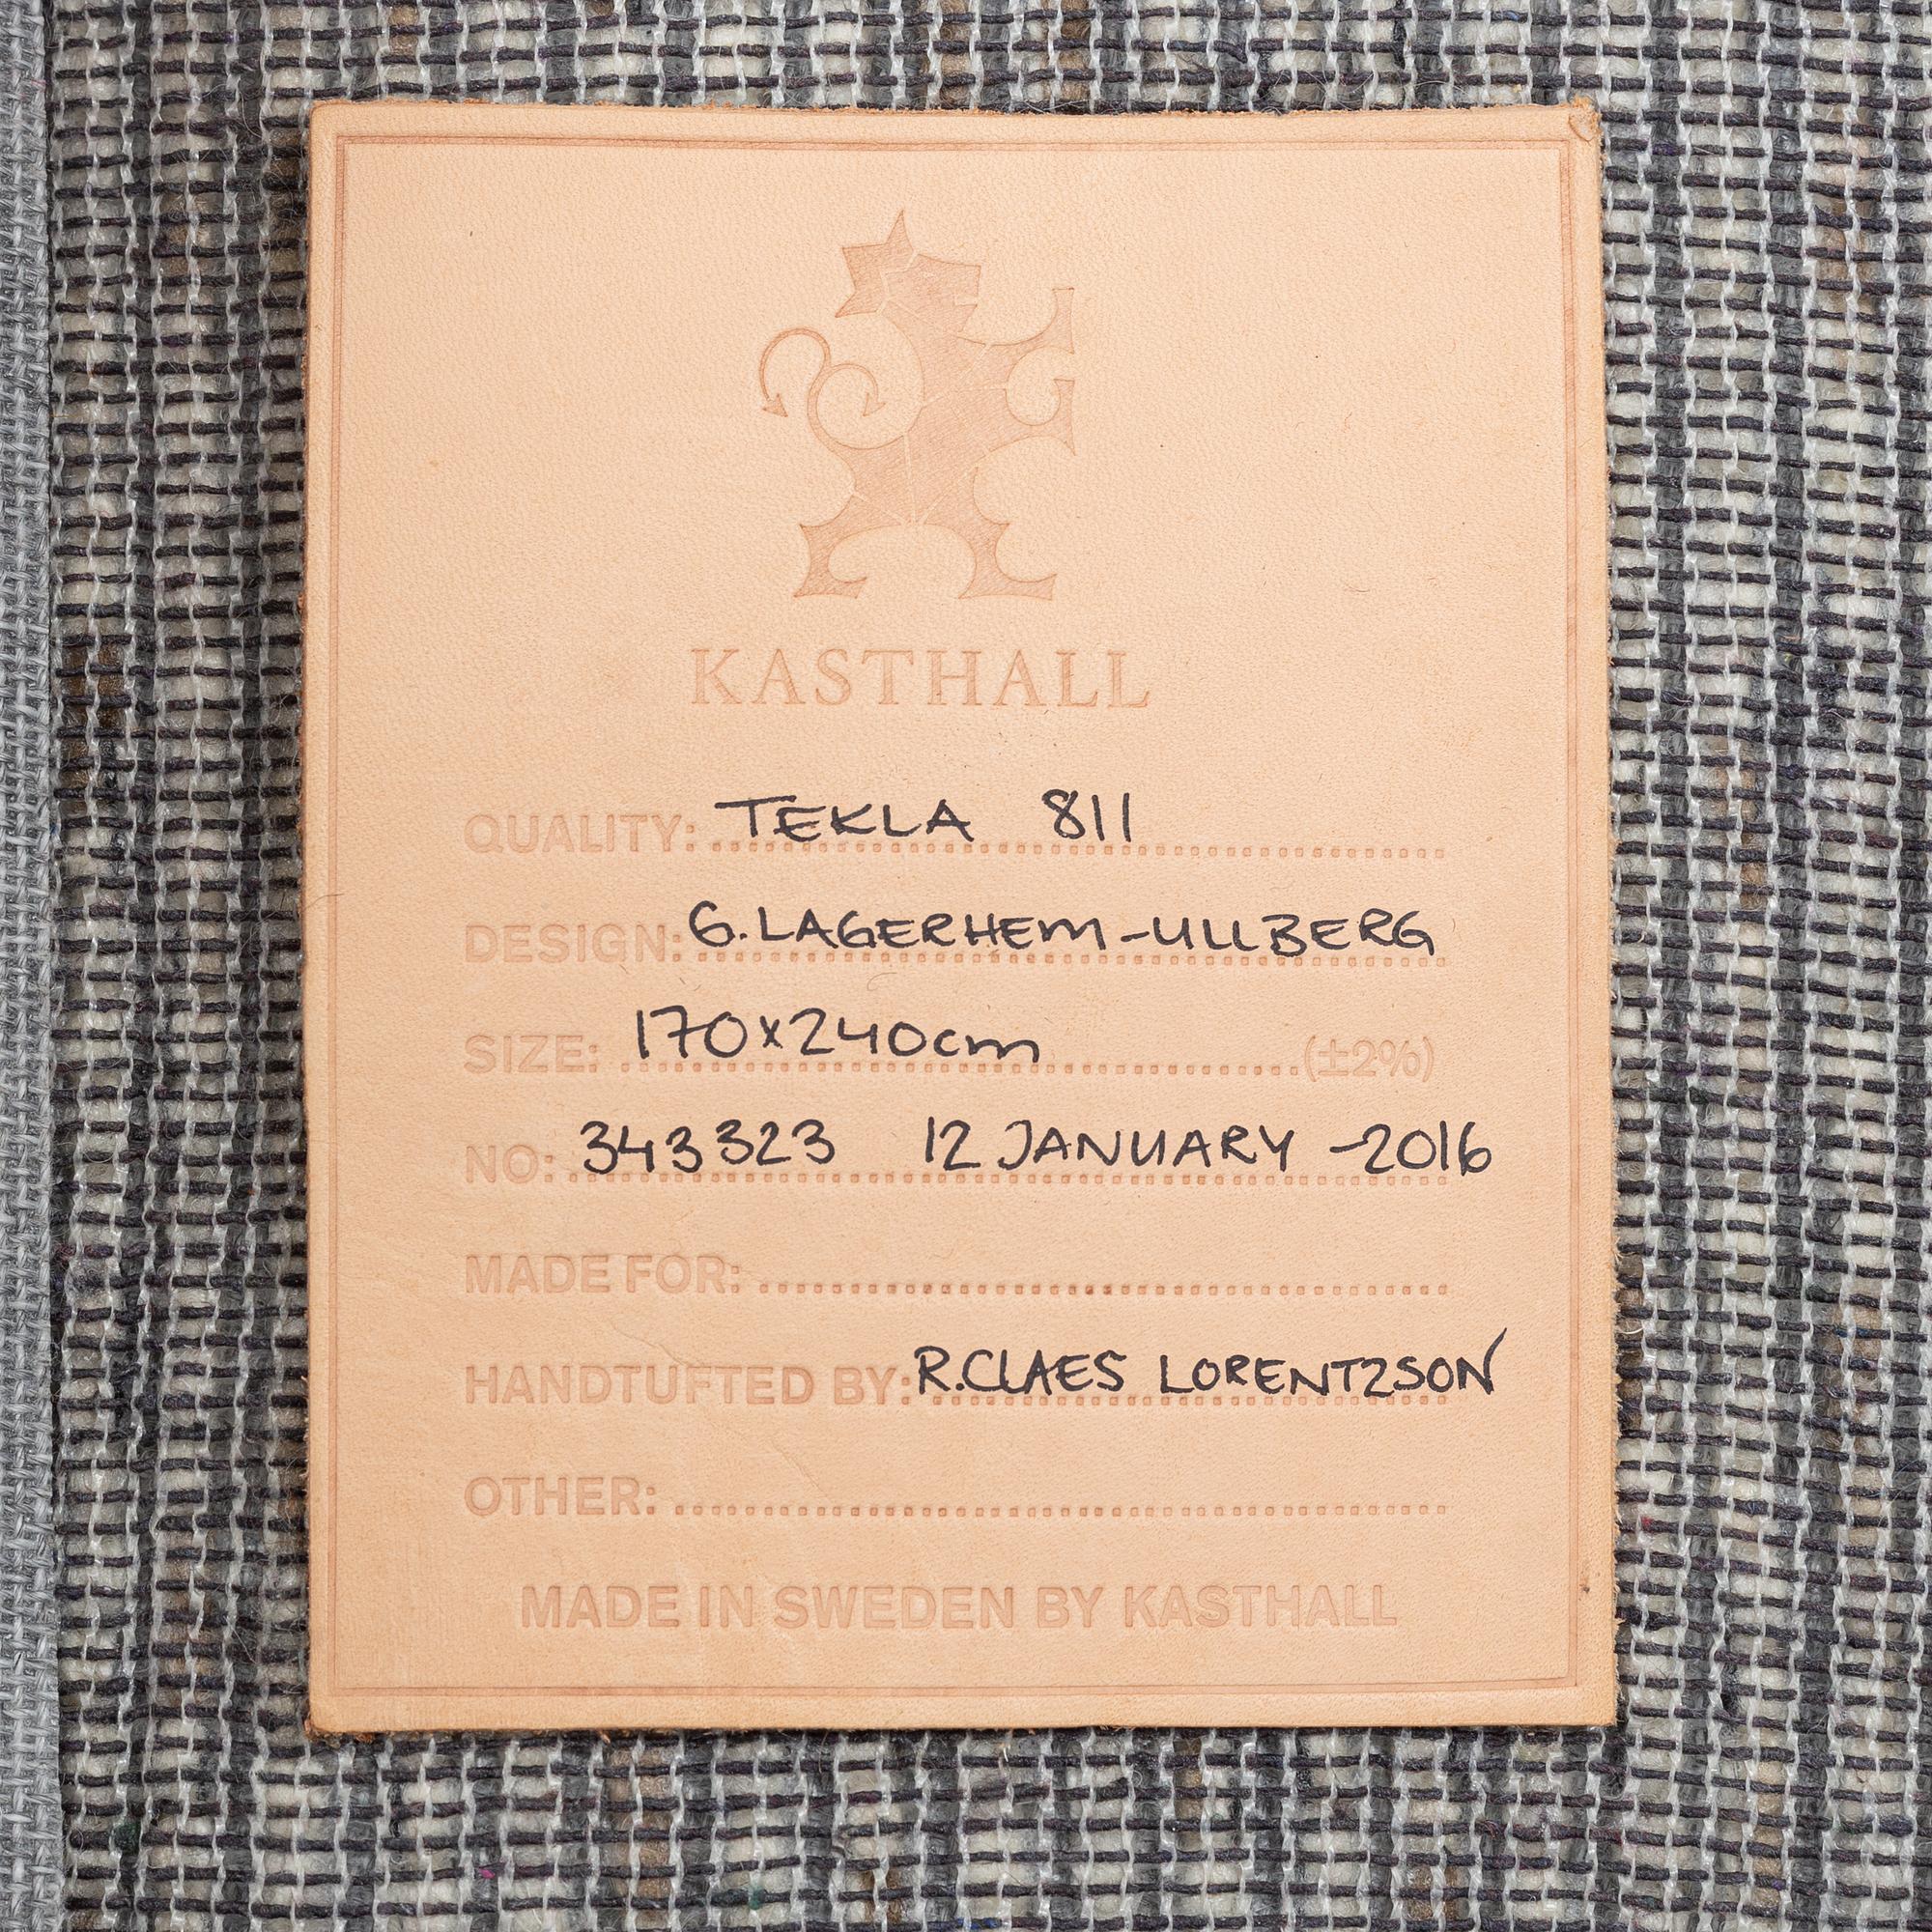 KASTHALL
QUALITY: TEKLA 811
DESIGN: G.LAGERHEM-ULLBERG
SIZE: 170x240cm (±2%)
NO: 343323 12 JANUARY -2016
MADE FOR:
HANDTUFTED BY: R.CLAES LORENTZSON
OTHER:
MADE IN SWEDEN BY KASTHALL